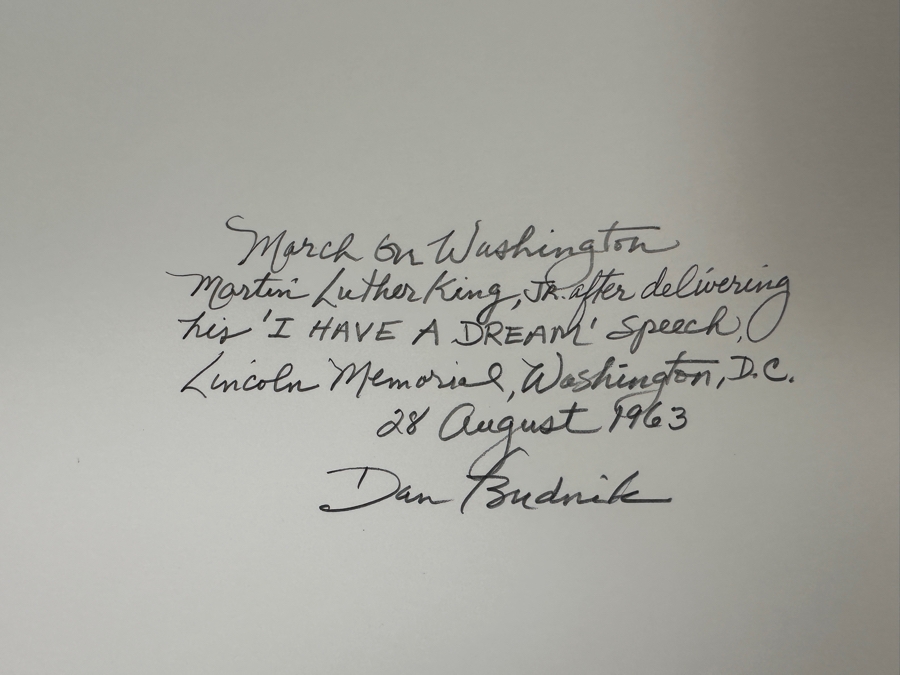 March on Washington
Martin Luther King, JR. after delivering
his 'I HAVE A DREAM' speech,
Lincoln Memorial, Washington, D.C.
28 August 1963
Dan Budnik